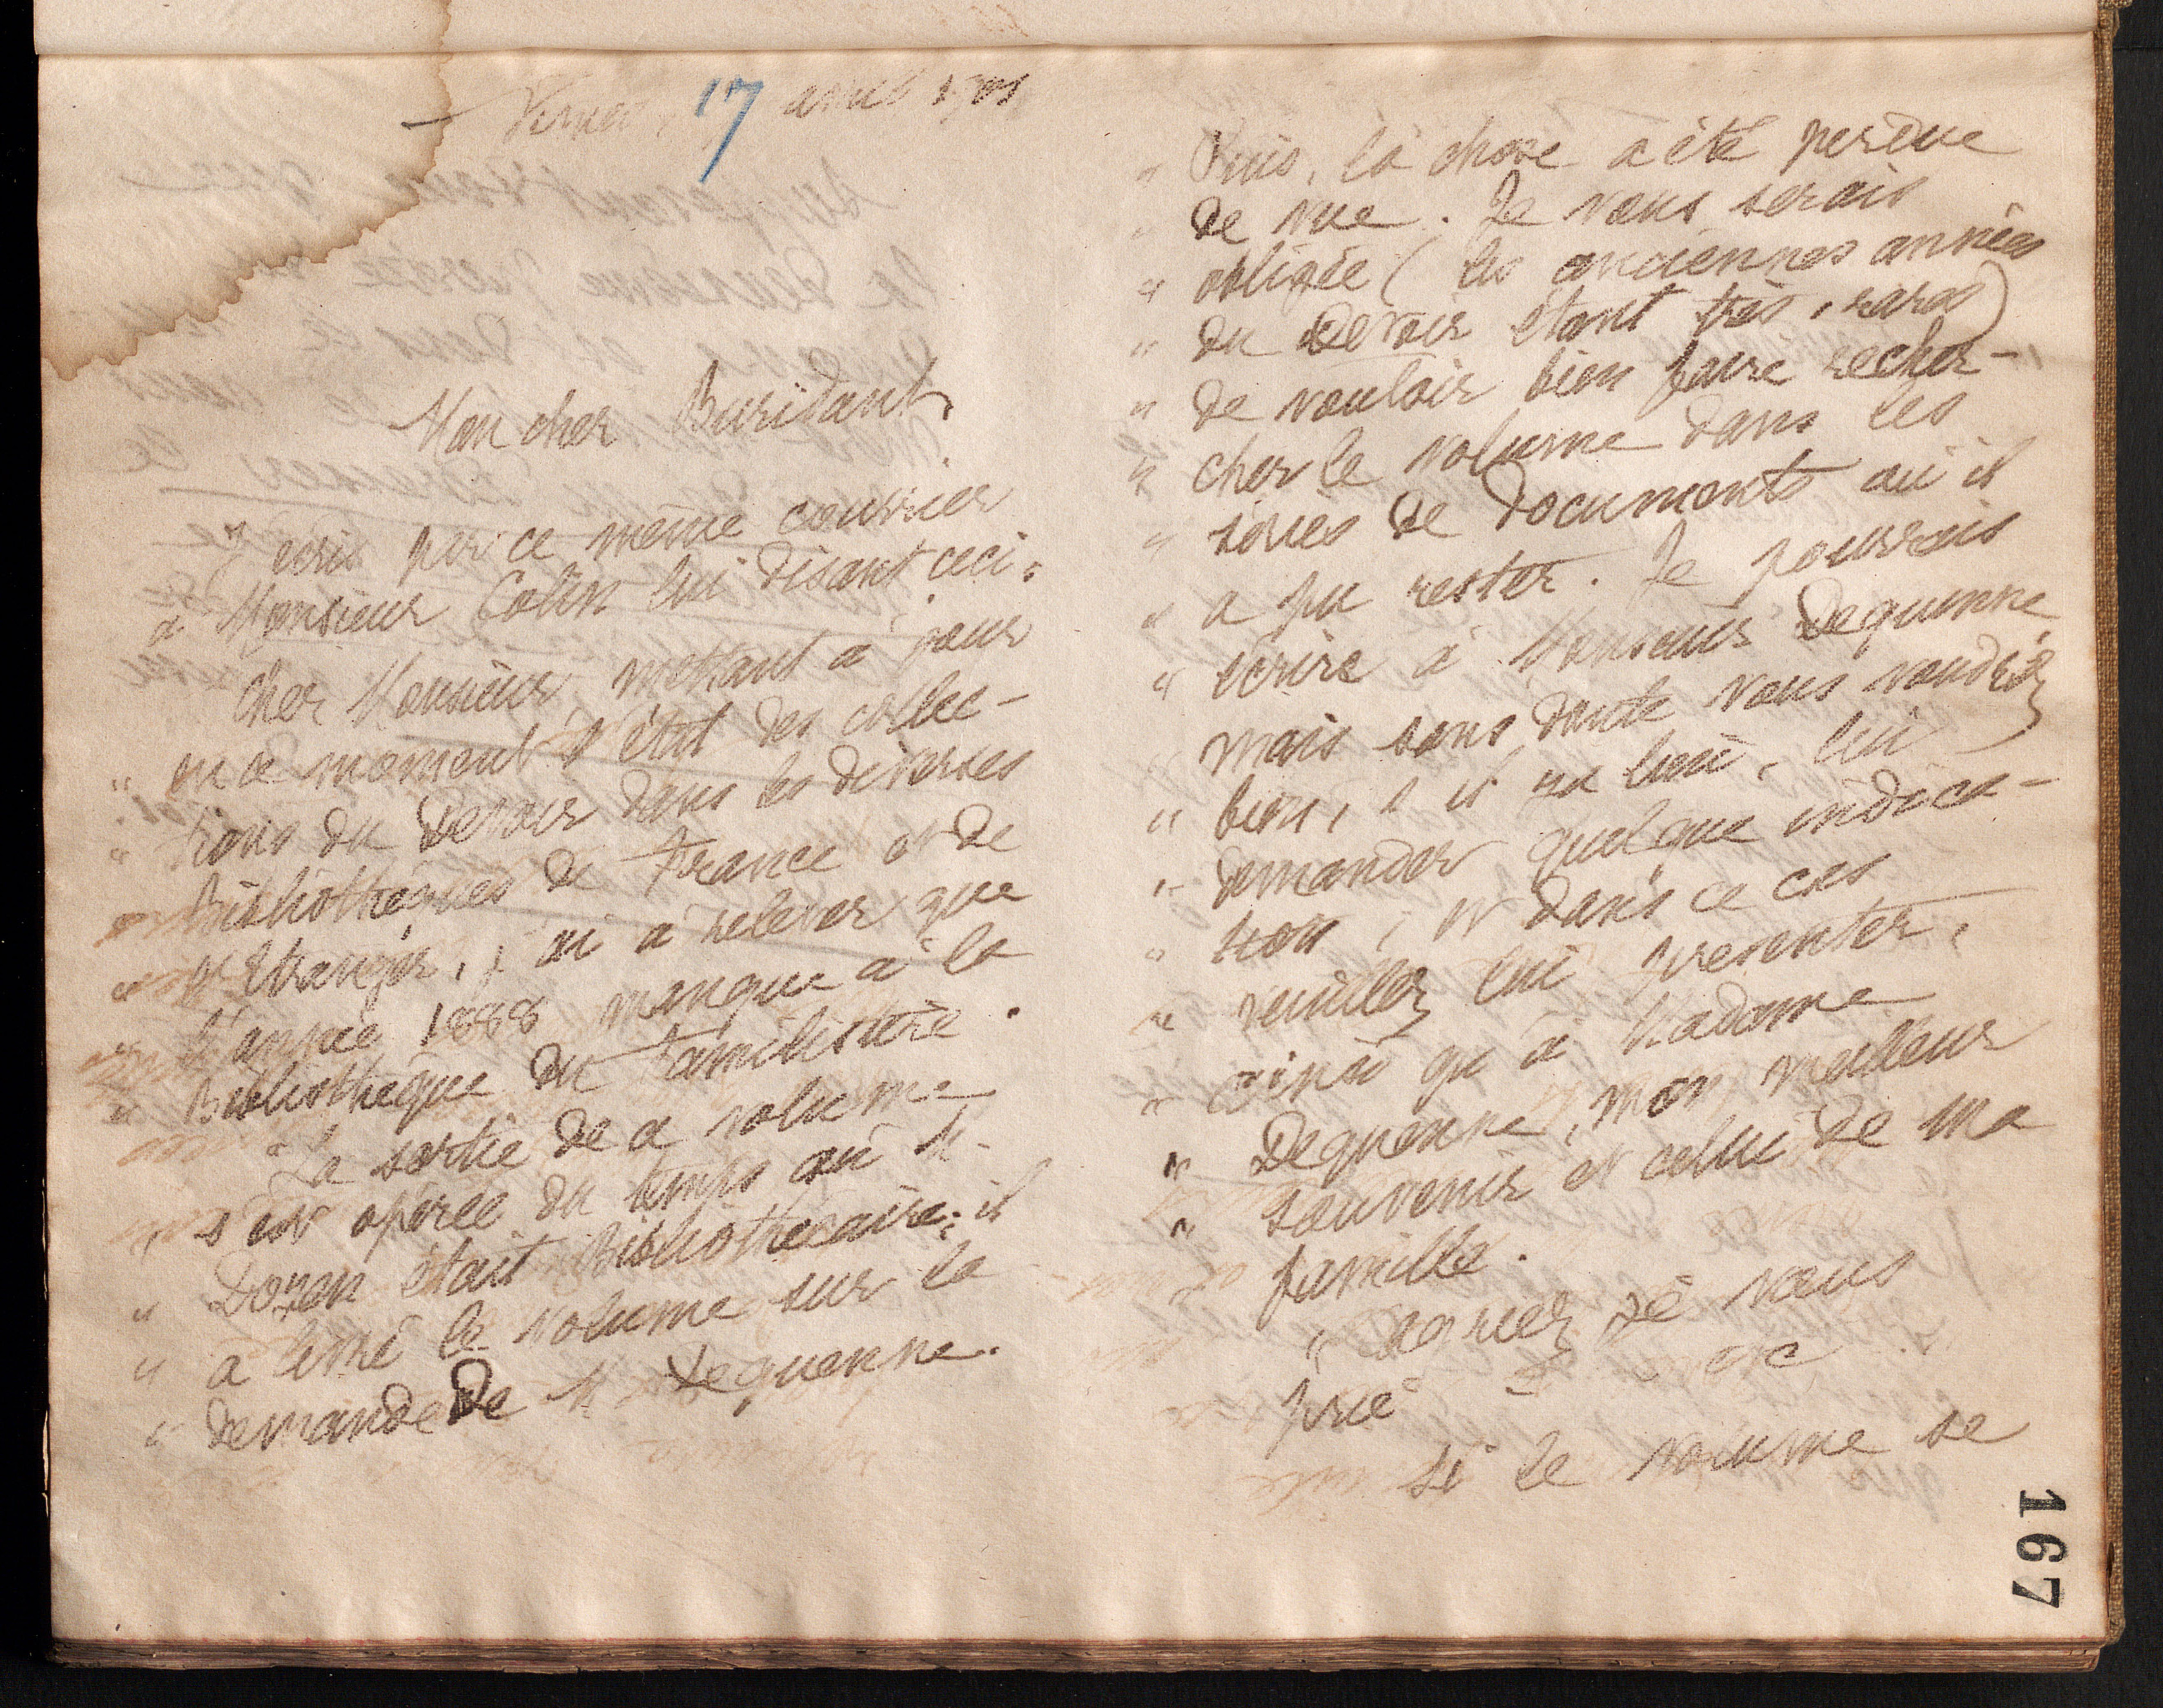 17 avril
Mon cher Buridant,
J'écris par ce même courrier
à Monsieur Colin lui disant ceci :
Cher Monsieur, mettant à jour
" en ce moment l'état des collec-
" tions du Devoir dans les diverses
" Bibliothèques de France et de
" l'Etranger, j'ai à relever que
" l'année 1888 manque à la
" Bibliothèque du Familistère.
" La sortie de ce volume
" s'est opérée du temps où M.
" Doyen était Bibliothécaire ; il
" a livré le volume sur la
" demande de M Dequenne.
" Puis, la chose a été perdue
" de vue. Je vous serais
" obligée (les anciennes années
" du Devoir étant très rares)
" de vouloir bien faire recher-
" cher le volume dans les
" séries de documents où il
" a pu rester. Je pourrais
" écrire à Monsieur Dequenne
" mais sans doute vous voudrez
" bien, s'il y a lieu, lui
" demander quelque indica-
" tion, et dans ce cas
" veuillez lui présenter,
" ainsi qu'à Madame
" Dequenne, mon meilleur
" souvenir et celui de ma
" famille.
" Agréez je vous
prie etc
Si le volume se
167